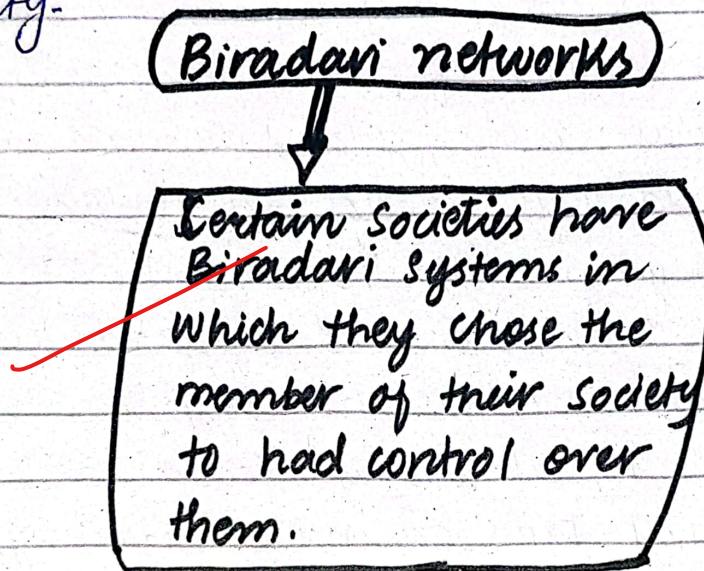 ty.
Biradari networks
Certain societies have
Biradari systems in
which they chose the
member of their society
to had control over
them.